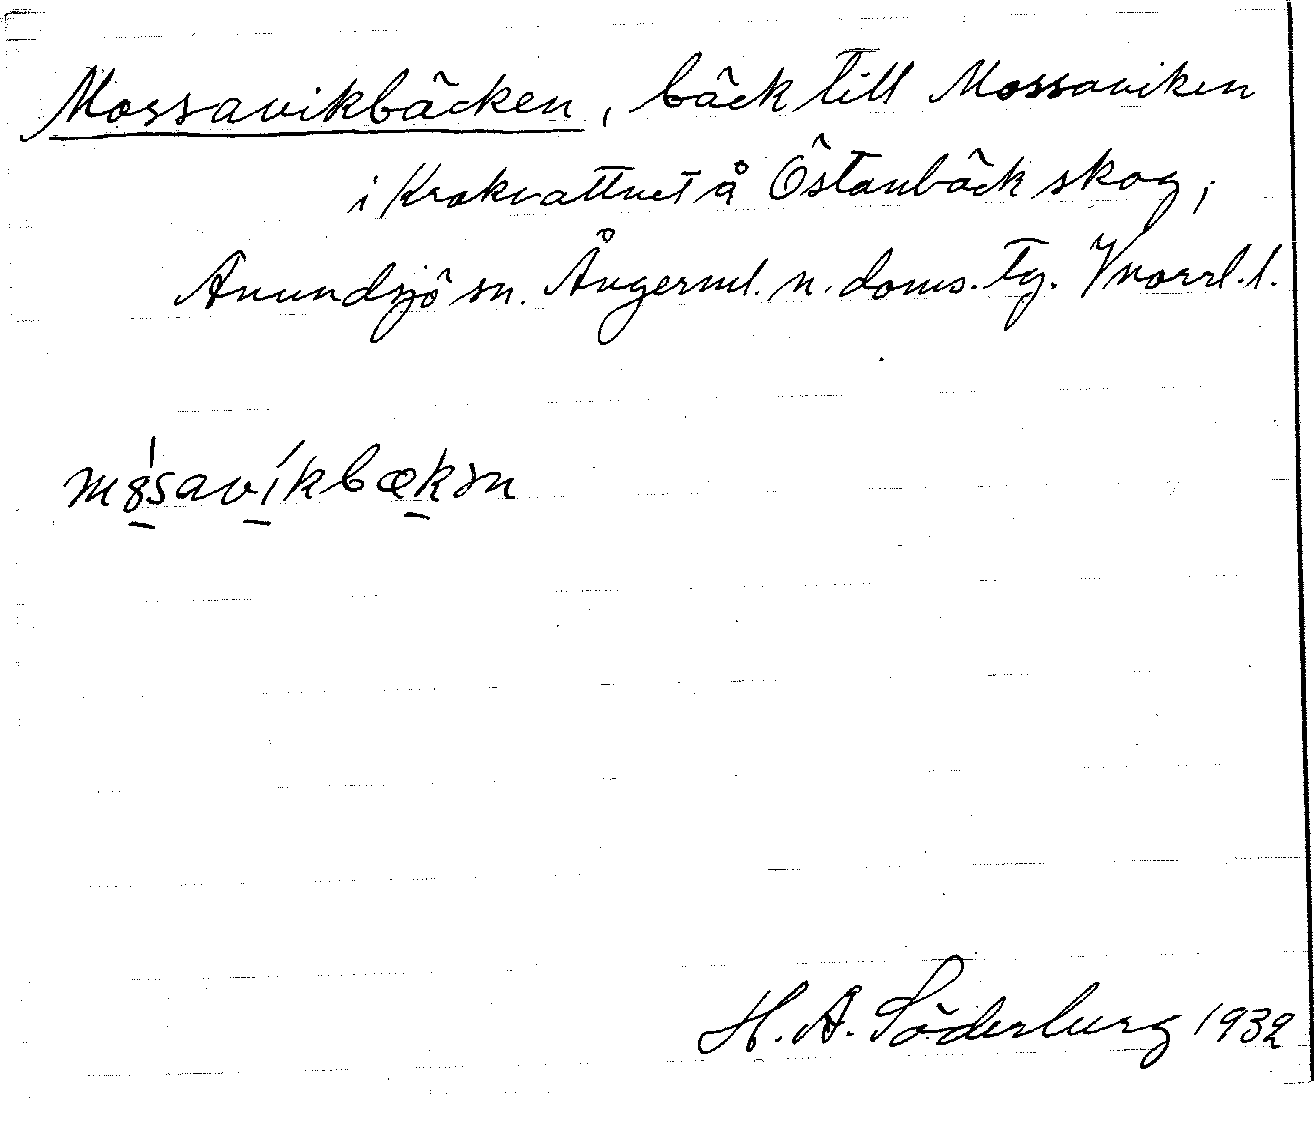 Mossavikbäcken, bäck till Mossaviken
i Krokvattnet å Östanbäck skog,
Anundsjö sn. Ångerml. n. doms. tg. Vnorrl. l.
H. A. Söderburg 1932